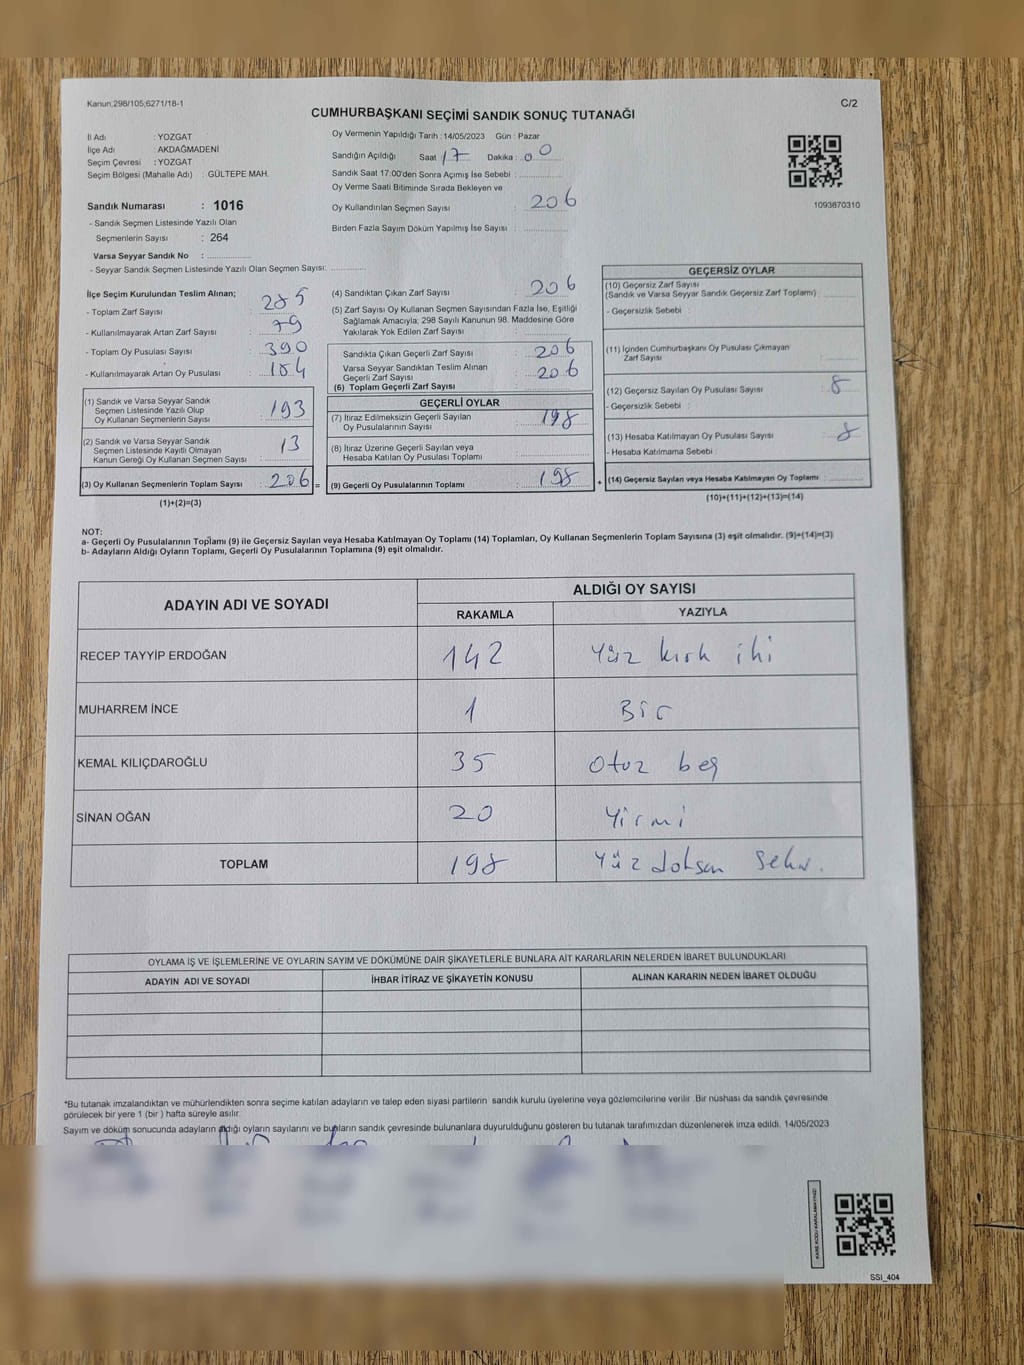 Kanun;298/105;6271/18-1
C/2
CUMHURBAŞKANI SEÇİMİ SANDIK SONUÇ TUTANAĞI
İl Adı : YOZGAT
İlçe Adı : AKDAĞMADENİ
Seçim Çevresi : YOZGAT
Seçim Bölgesi (Mahalle Adı) : GÜLTEPE MAH.
Sandık Numarası : 1016
- Sandık Seçmen Listesinde Yazılı Olan
Seçmenlerin Sayısı : 264
Varsa Seyyar Sandık No :
- Seyyar Sandık Seçmen Listesinde Yazılı Olan Seçmen Sayısı:
Oy Vermenin Yapıldığı Tarih : 14/05/2023 Gün : Pazar
Sandığın Açıldığı Saat 17 Dakika : 00
Sandık Saat 17:00'den Sonra Açımış İse Sebebi :
Oy Verme Saati Bitiminde Sırada Bekleyen ve
Oy Kullandırılan Seçmen Sayısı : 206
Birden Fazla Sayım Döküm Yapılmış İse Sayısı :
1093870310
İlçe Seçim Kurulundan Teslim Alınan;
- Toplam Zarf Sayısı : 285
- Kullanılmayarak Artan Zarf Sayısı : 79
- Toplam Oy Pusulası Sayısı : 390
- Kullanılmayarak Artan Oy Pusulası : 184
(1) Sandık ve Varsa Seyyar Sandık
Seçmen Listesinde Yazılı Olup
Oy Kullanan Seçmenlerin Sayısı : 193
(2) Sandık ve Varsa Seyyar Sandık
Seçmen Listesinde Kayıtlı Olmayan
Kanun Gereği Oy Kullanan Seçmen Sayısı : 13
(3) Oy Kullanan Seçmenlerin Toplam Sayısı : 206 =
(1)+(2)=(3)
(4) Sandıktan Çıkan Zarf Sayısı : 206
(5) Zarf Sayısı Oy Kullanan Seçmen Sayısından Fazla İse, Eşitliği
Sağlamak Amacıyla; 298 Sayılı Kanunun 98. Maddesine Göre
Yakılarak Yok Edilen Zarf Sayısı :
Sandıkta Çıkan Geçerli Zarf Sayısı : 206
Varsa Seyyar Sandıktan Teslim Alınan
Geçerli Zarf Sayısı
(6) Toplam Geçerli Zarf Sayısı : 206
GEÇERLİ OYLAR
(7) İtiraz Edilmeksizin Geçerli Sayılan
Oy Pusulalarının Sayısı : 198
(8) İtiraz Üzerine Geçerli Sayılan veya
Hesaba Katılan Oy Pusulası Toplamı :
(9) Geçerli Oy Pusulalarının Toplamı : 198 +
GEÇERSİZ OYLAR
(10) Geçersiz Zarf Sayısı
(Sandık ve Varsa Seyyar Sandık Geçersiz Zarf Toplamı) :
- Geçersizlik Sebebi :
(11) İçinden Cumhurbaşkanı Oy Pusulası Çıkmayan
Zarf Sayısı :
(12) Geçersiz Sayılan Oy Pusulası Sayısı : 8
- Geçersizlik Sebebi :
(13) Hesaba Katılmayan Oy Pusulası Sayısı : 8
- Hesaba Katılmama Sebebi :
(14) Geçersiz Sayılan veya Hesaba Katılmayan Oy Toplamı :
(10)+(11)+(12)+(13)=(14)
NOT:
a- Geçerli Oy Pusulalarının Toplamı (9) ile Geçersiz Sayılan veya Hesaba Katılmayan Oy Toplamı (14) Toplamları, Oy Kullanan Seçmenlerin Toplam Sayısına (3) eşit olmalıdır. (9)+(14)=(3)
b- Adayların Aldığı Oyların Toplamı, Geçerli Oy Pusulalarının Toplamına (9) eşit olmalıdır.
ADAYIN ADI VE SOYADI
ALDIĞI OY SAYISI
RAKAMLA YAZIYLA
RECEP TAYYİP ERDOĞAN 142 Yüz kırk iki
MUHARREM İNCE 1 Bir
KEMAL KILIÇDAROĞLU 35 Otuz beş
SİNAN OĞAN 20 Yirmi
TOPLAM 198 Yüz doksan
OYLAMA İŞ VE İŞLEMLERİNE VE OYLARIN SAYIM VE DÖKÜMÜNE DAİR ŞİKAYETLERLE BUNLARA AİT KARARLARIN NELERDEN İBARET BULUNDUKLARI
ADAYIN ADI VE SOYADI İHBAR İTİRAZ VE ŞİKAYETİN KONUSU ALINAN KARARIN NEDEN İBARET OLDUĞU
*Bu tutanak imzalandıktan ve mühürlendikten sonra seçime katılan adayların ve talep eden siyasi partilerin sandık kurulu üyelerine veya gözlemcilerine verilir. Bir nüshası da sandık çevresinde
görülecek bir yere 1 (bir) hafta süreyle asılır.
Sayım ve döküm sonucunda adayların aldığı oyların sayılarını ve bunların sandık çevresinde bulunanlara duyurulduğunu gösteren bu tutanak tarafımızdan düzenlenerek imza edildi. 14/05/2023
KARE KODU KARALAMAYINIZ!
SSI_404